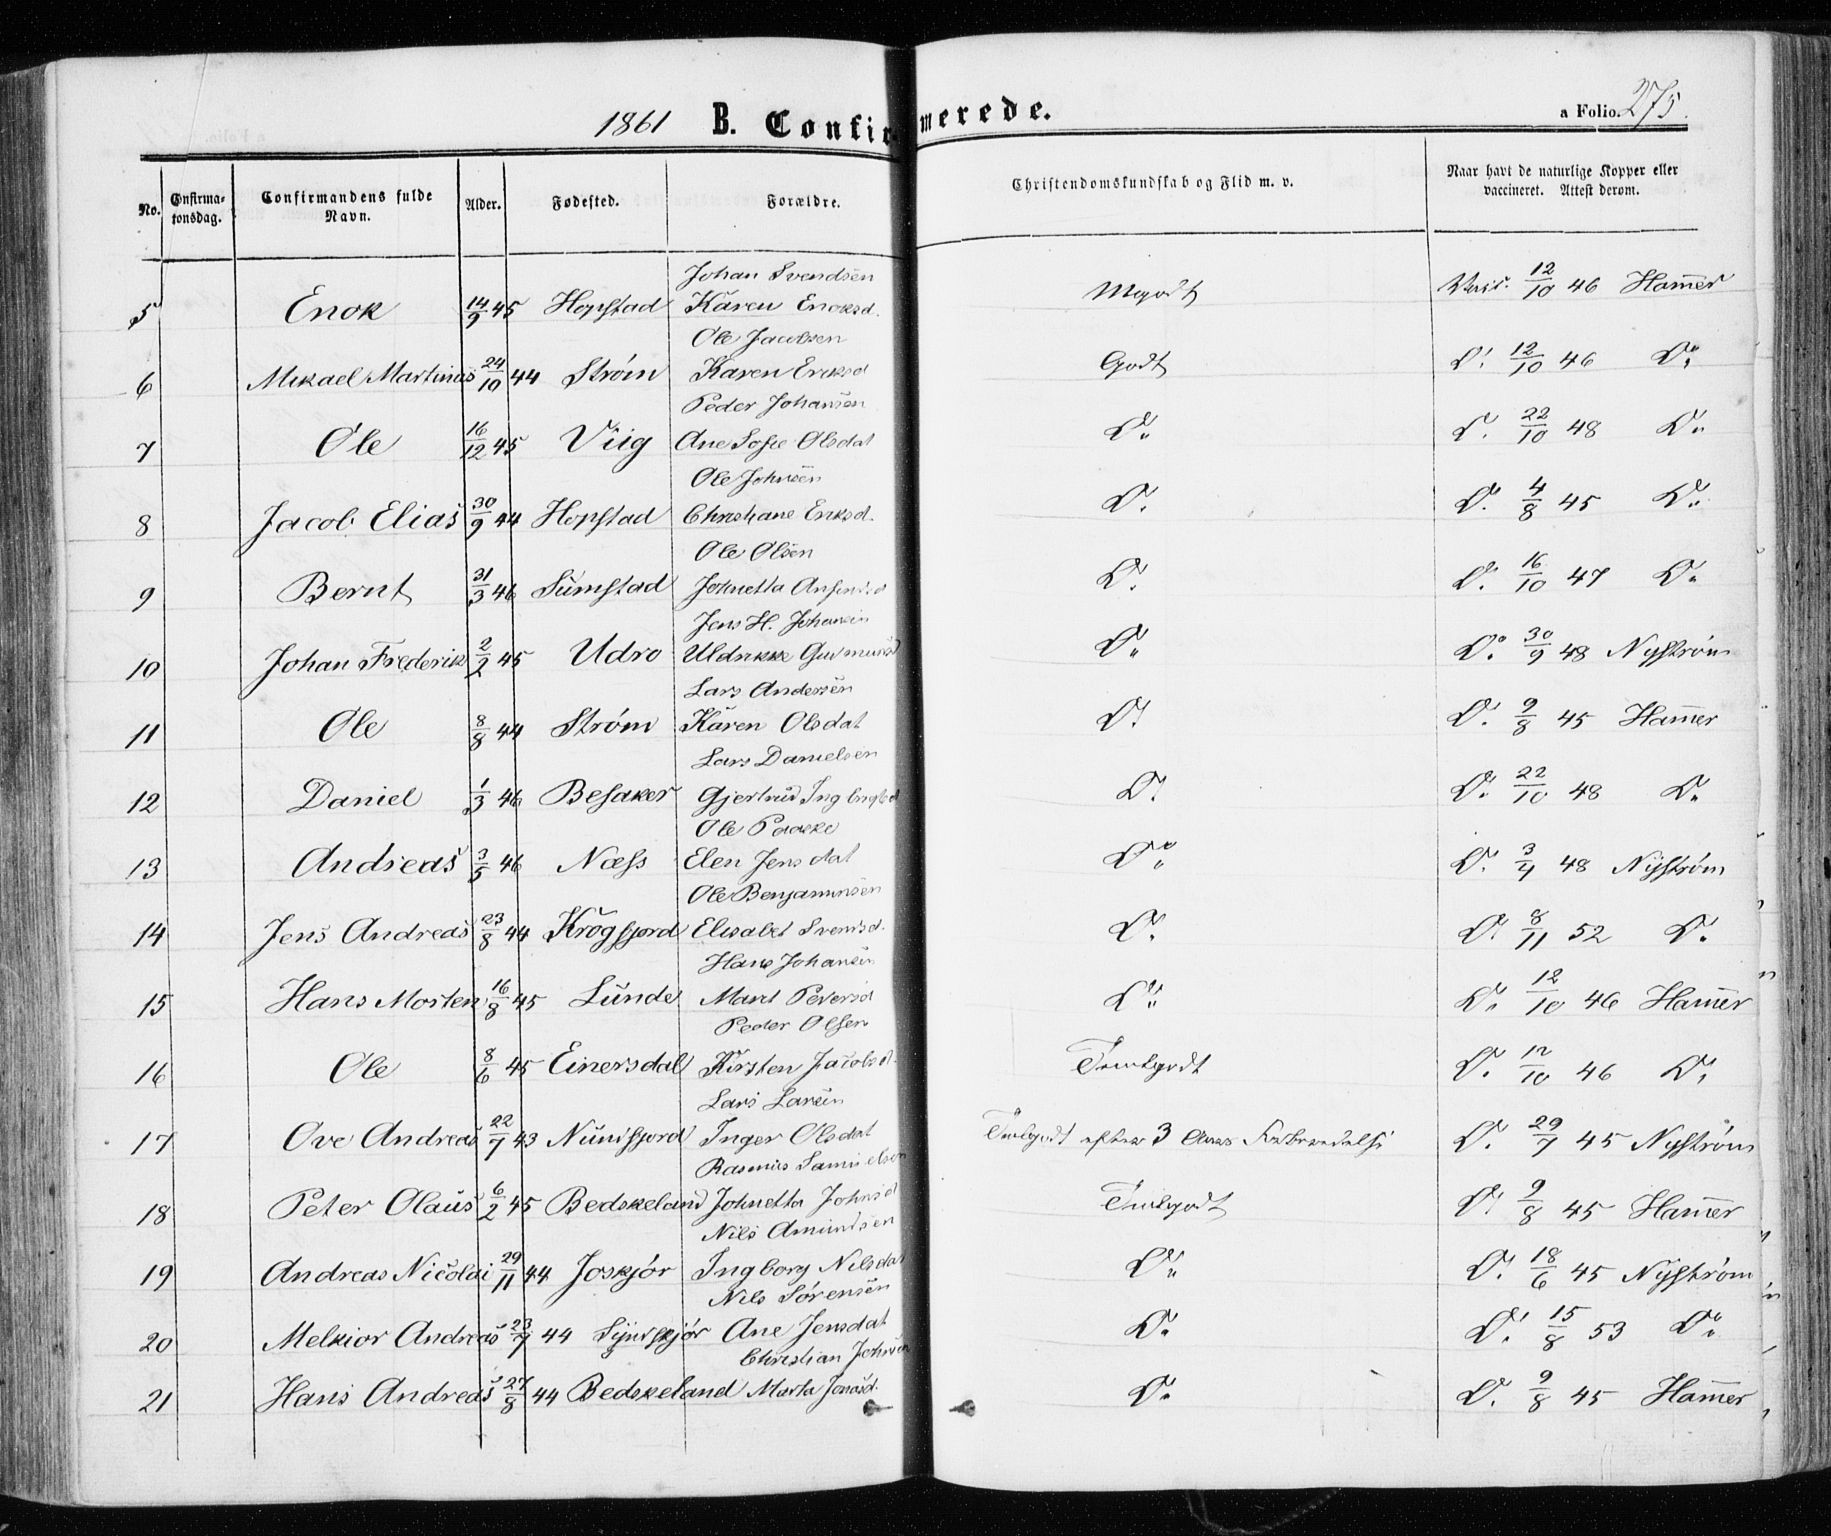 1861 B. Confirmerede. a Folio. 275.
No. Confirmationsdag. Confirmandens fulde Navn. Alder. Fødested. Forældre. Christendomskundskab og Flid m. v. Naar havt de naturlige Kopper eller vaccineret. Attest derom.
Johan Svendsen
5 Enok 14/9 45 Hopstad Karen Enoksd. Mgodt 12/10 46 Hamer
Ole Jacobsen
6 Mikael Martinus 24/10 44 Strøm Karen Eriksd Godt D. 12/10 46 D.
Peder Johansen
7 Ole 16/12 45 Viig Ane Sofie Olsdat D. D. 22/10 48 D.
Ole Johnsen
8 Jacob Elias 30/9 44 Hopstad Christiane Eriksd. D. D. 4/8 45 D.
Ole Olsen
9 Bernt 31/3 46 Sumstad Johnetta D. D. 16/10 47 D.
Jens H. Johansen
10 Johan Frederik 2/2 45 Udro Uldrikke Gudmunsd D. D. 30/9 48 Nystrøm
Lars Andersen
11 Ole 8/8 44 Strøm Karen Olsdat D. D. 9/8 45 Hamer
Lars Danielsen
12 Daniel 1/3 46 Besaker Gjertrud D. D. 22/10 48 D.
Ole Paaske
13 Andreas 3/5 46 Næss Elen Jensdat D. D. 3/4 48 Nystrøm
Ole Benjaminsen
14 Jens Andreas 23/8 44 Krogfjord Elisabet Svendsd. D. D. 8/11 52 D.
Hans Johansen
15 Hans Morten 16/8 45 Lunde Marit Pedersd D. D. 12/10 46 Hamer
Peder Olsen
16 Ole 8/6 45 Einersdal Kirsten Jacobsd. Temlgodt D. 12/10 46 D.
Lars Larsen
17 Ove Andreas 22/7 43 Nundfjord Inger Olsdat Temlgodt efter 3 Aars Forberedelse D. 29/7 45 Nystrøm
Rasmus Samuelsen
18 Peter Olaus 6/2 45 Bedskeland Johnetta Johnsd Temlgodt D. 9/8 45 Hamer
Nils Amundsen
19 Andreas Nicolai 29/11 44 Joskjør Ingborg Nilsdat D. D. 18/6 45 Nystrøm
Nils Sørensen
20 Melkior Andreas 23/7 44 Syndskjør Ane Jensdat D. D. 15/8 53 D.
Christian Johnsen
21 Hans Andreas 27/8 44 Bedskeland Marta Jonasd. D. D. 9/8 45 Hamer